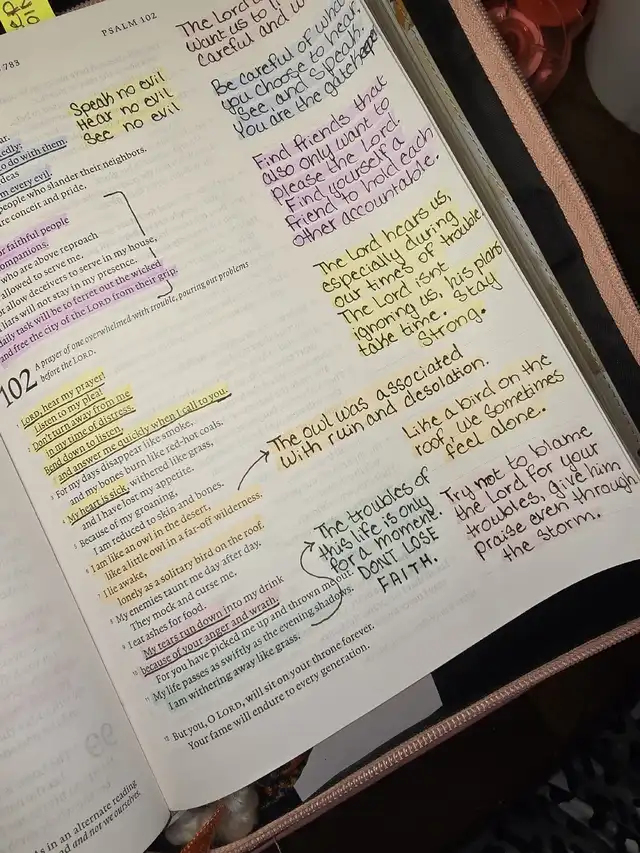 PSALM 102
783
The Lord
want us to
careful and w
Be careful of what
you choose to hear,
see, and speak.
You are the gatekeeper
Speak no evil
Hear no evil
See no evil
Find friends that
also only want to
please the Lord.
Find yourself a
friend to hold each
other accountable.
The Lord hears us,
especially during
our times of trouble.
The Lord isnt
ignoring us, his plans
take time. Stay
strong.
to do with them.
ideas
m every evil.
people who slander their neighbors.
are conceit and pride.
or faithful people
companions.
who are above reproach
allowed to serve me.
ot allow deceivers to serve in my house,
liars will not stay in my presence.
daily task will be to ferret out the wicked
and free the city of the LORD from their grip.
102 A prayer of one overwhelmed with trouble, pouring out problems
before the LORD.
LORD, hear my prayer!
Listen to my plea!
2 Don't turn away from me
in my time of distress.
Bend down to listen,
and answer me quickly when I call to you.
3 For my days disappear like smoke,
and my bones burn like red-hot coals.
4 My heart is sick, withered like grass,
and I have lost my appetite.
5 Because of my groaning,
I am reduced to skin and bones.
6 I am like an owl in the desert,
like a little owl in a far-off wilderness.
7 I lie awake,
lonely as a solitary bird on the roof.
8 My enemies taunt me day after day.
They mock and curse me.
9 I eat ashes for food.
My tears run down into my drink
10 because of your anger and wrath.
For you have picked me up and thrown me out.
11 My life passes as swiftly as the evening shadows.
I am withering away like grass.
12 But you, O LORD, will sit on your throne forever.
Your fame will endure to every generation.
The owl was associated
with ruin and desolation.
Like a bird on the
roof, we sometimes
feel alone.
The troubles of
this life is only
for a moment.
DONT LOSE
FAITH.
Try not to blame
the Lord for your
troubles, give him
praise even through
the storm.
As in an alternative reading
and not we ourselves.